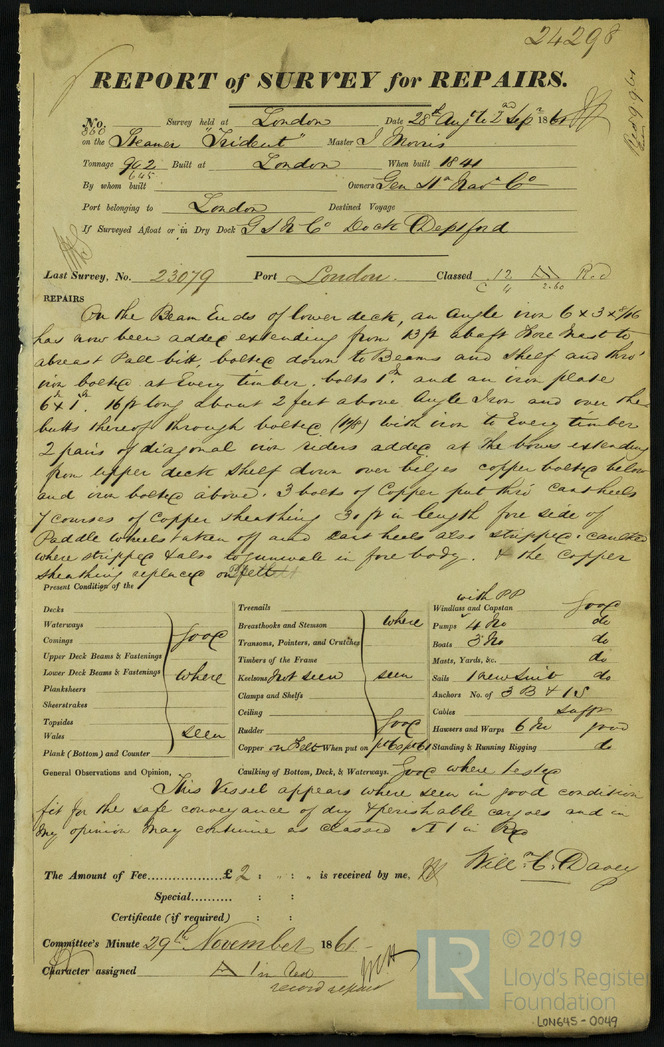 24298
REPORT of SURVEY for REPAIRS.
No. 860 Survey held at London Date 28th Augt to 2nd Sepr 1861
on the Steamer "Trident" Master J Morris
Tonnage 902 Built at London When built 1841
645
By whom built Owners Genl Stm Navn Co
Port belonging to London Destined Voyage
If Surveyed Afloat or in Dry Dock G S N Co Dock Deptford
Last Survey, No. 23079 Port London. Classed 12 A1 Red
C 4 2.60
REPAIRS
On the Beam Ends of lower deck, an angle iron 6 x 3 x 8/16
has now been added extending from 13 ft abaft Fore Mast to
abreast Pall bitt, bolted down to Beams and Shelf and thro'
iron bolted at Every timber. bolts 1 in and an iron plate
6 x 1. 16 ft long about 2 feet above Angle Iron and over the
butts thereof through bolted (1 1/8) with iron to Every timber
2 pairs of diagonal iron riders added at the bows extending
from upper deck shelf down over bilges copper bolted below
and iron bolted above. 3 bolts of Copper put thro' cant heels
7 courses of Copper sheathing 30 ft in length fore side of
Paddle wheels taken off and cant heels also stripped. caulked
where stripped & also to gunwale in fore body. & the Copper
sheathing replaced on felt
Present Condition of the
Decks
Waterways
Comings
Upper Deck Beams & Fastenings
Lower Deck Beams & Fastenings
Planksheers
Sheerstrakes
Topsides
Wales
Plank (Bottom) and Counter
Good
where
seen
Treenails
Breasthooks and Stemson
Transoms, Pointers, and Crutches
Timbers of the Frame
Keelsons Not seen
Clamps and Shelfs
Ceiling
Rudder
where
seen
Good
Copper on Felt When put on
with PP
Windlass and Capstan Good
Pumps 4 No do
Boats 3 No do
Masts, Yards, &c. do
Sails 1 new Suit do
Anchors No. of 3 B & 1 S
Cables Sufft
Hawsers and Warps 6 No good
Standing & Running Rigging do
General Observations and Opinion, Caulking of Bottom, Deck, & Waterways. Good where tested
This Vessel appears where seen in good condition
fit for the safe conveyance of dry & perishable cargoes and in
my opinion may continue as classed A 1 in Red
Willm C. Davey
The Amount of Fee £ 2 : " : " is received by me,
Special : :
Certificate (if required) : :
Committee's Minute 29th November 1861
Character assigned A 1 in Red
record repair
© 2019
LR
Lloyd's Register
Foundation
LON645-0049